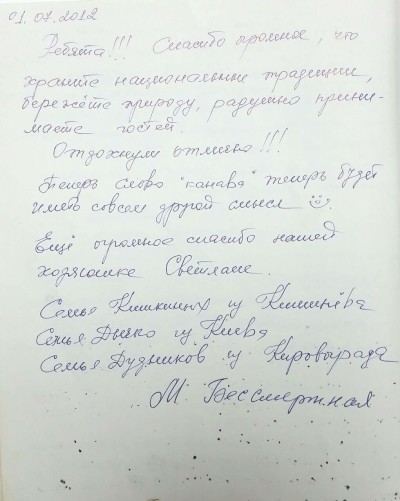 01.07.2012
Ребята!!! Спасибо огромное, что
храните национальные традиции,
бережёте природу, радушно прини-
маете гостей.
Отдохнули отлично!!!
Теперь слово "канава" теперь будет
иметь совсем другой смысл
Ещё огромное спасибо нашей
хозяюшке Светлане.
Семья Кишкиных из Кишинёва
Семья Дычко из Киева
Семья Дудников из Кировограда
М. Бессмертная